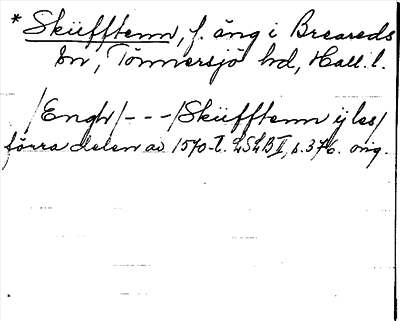 * Sküfftenn, f. äng i Breareds
sn, Tönnersjö hd, Hall. l.
/Engh/ - - - /Sküfftenn ÿ les/
förra delen av 1570-t. LSLB II, s. 376. orig.